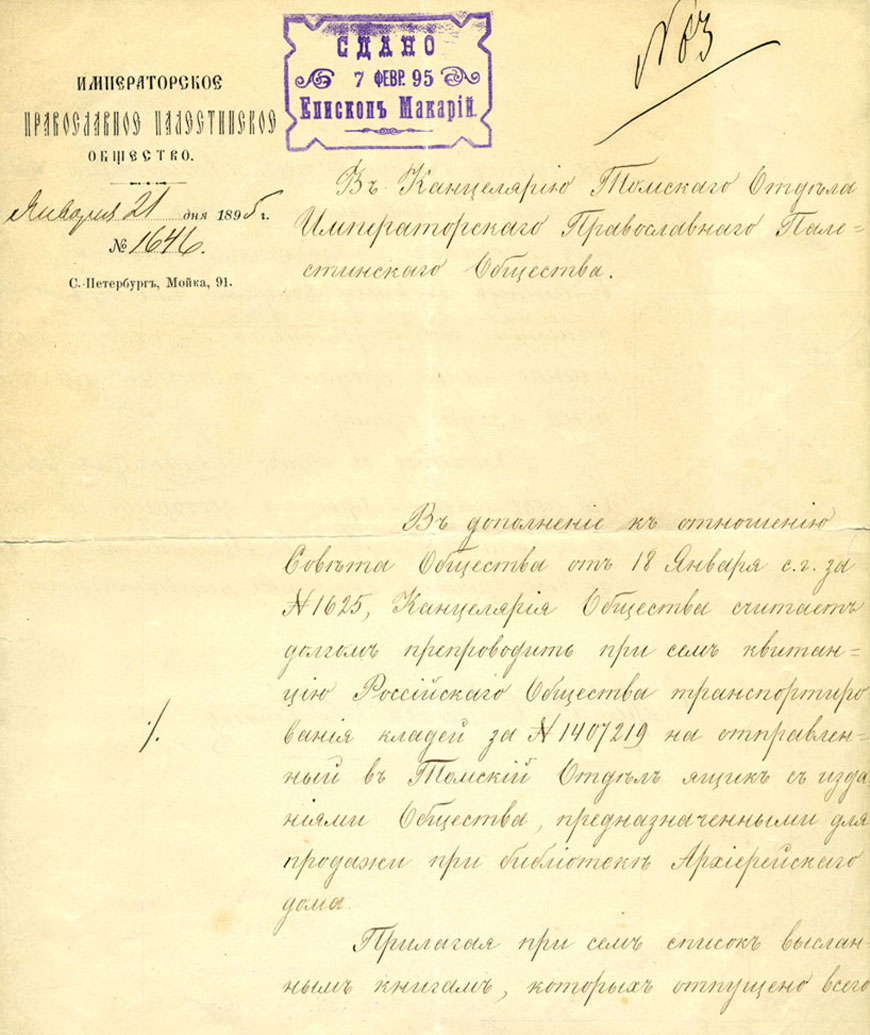 ИМПЕРАТОРСКОЕ
ПРАВОСЛАВНОЕ ПАЛЕСТИНСКОЕ
ОБЩЕСТВО.
Января 21 дня 1895 г.
№ 1646.
С.-Петербургъ, Мойка, 91.
СДАНО
7 ФЕВР. 95
Епископъ Макарій.
№ 3
Въ Канцелярію Томскаго Отдѣла
Императорскаго Православнаго Пале=
стинскаго Общества.
Въ дополненіе къ отношенію
Совѣта Общества отъ 18 Января с.г. за
№ 1625, Канцелярія Общества считаетъ
долгомъ препроводить при семъ квитан=
цію Россійскаго Общества транспортиро
ванія кладей за № 1407219 на отправлен=
ный въ Томскій Отдѣлъ ящикъ съ изда=
ніями Общества, предназначенными для
продажи при библіотекѣ Архіерейскаго
дома.
Прилагая при семъ списокъ выслан=
нымъ книгамъ, которыхъ отпущено всего